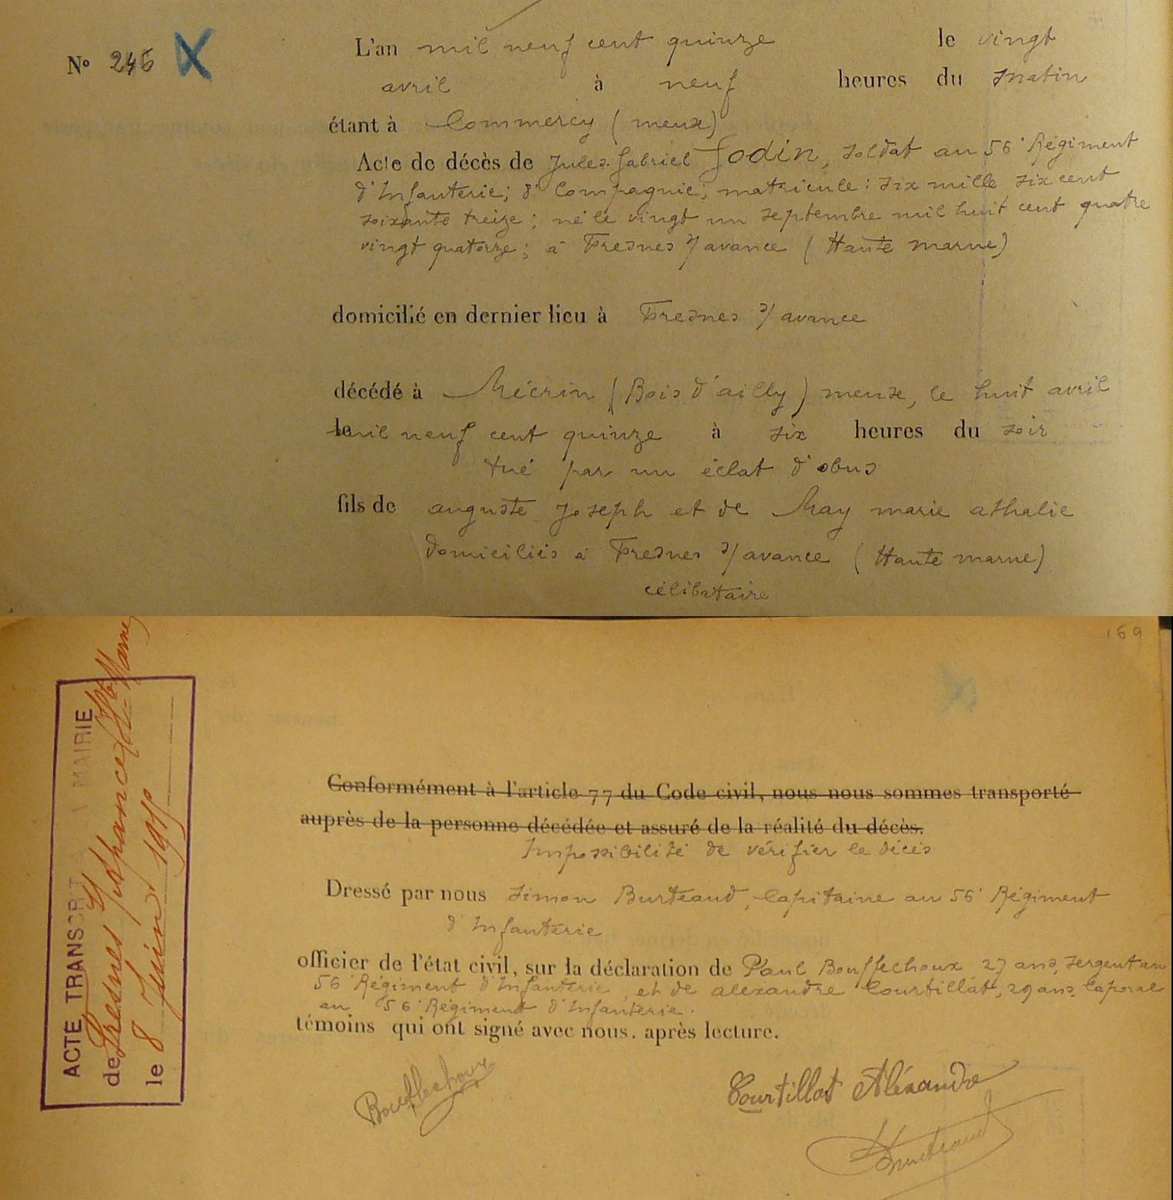 N° 246 X
L'an mil neuf cent quinze le vingt
avril à neuf heures du matin
étant à Commercy (meuse)
Acte de décès de Jules Gabriel Jodin, soldat au 56e Régiment
d'Infanterie; 8e Compagnie; matricule: six mille six cent
soixante treize; né le vingt un septembre mil huit cent quatre
vingt quatorze; à Fresnes s/ avance (Haute marne)
domicilié en dernier lieu à Fresnes s/ avance
décédé à Mécrin (Bois d'ailly) meuse, le huit avril
le mil neuf cent quinze à six heures du soir
tué par un éclat d'obus
fils de auguste Joseph et de May marie athalie
domiciliés à Fresnes s/ avance (Haute marne)
célibataire
169
ACTE TRANSCRIT A LA MAIRIE
de Fresnes s/ Aphance (Hte Marne)
le 8 Juin 1915
Conformément à l'article 77 du Code civil, nous nous sommes transporté
auprès de la personne décédée et assuré de la réalité du décès.
Impossibilité de vérifier le décès
Dressé par nous Simon Burteaud, Capitaine au 56e Régiment
d'Infanterie
officier de l'état civil, sur la déclaration de Paul Bouffechoux 27 ans, sergent au
56e Régiment d'Infanterie, et de alexandre Courtillat, 29 ans, Caporal
au 56e Régiment d'Infanterie.
témoins qui ont signé avec nous, après lecture.
Bouffechoux
Courtillat Aléxandre
Burteaud